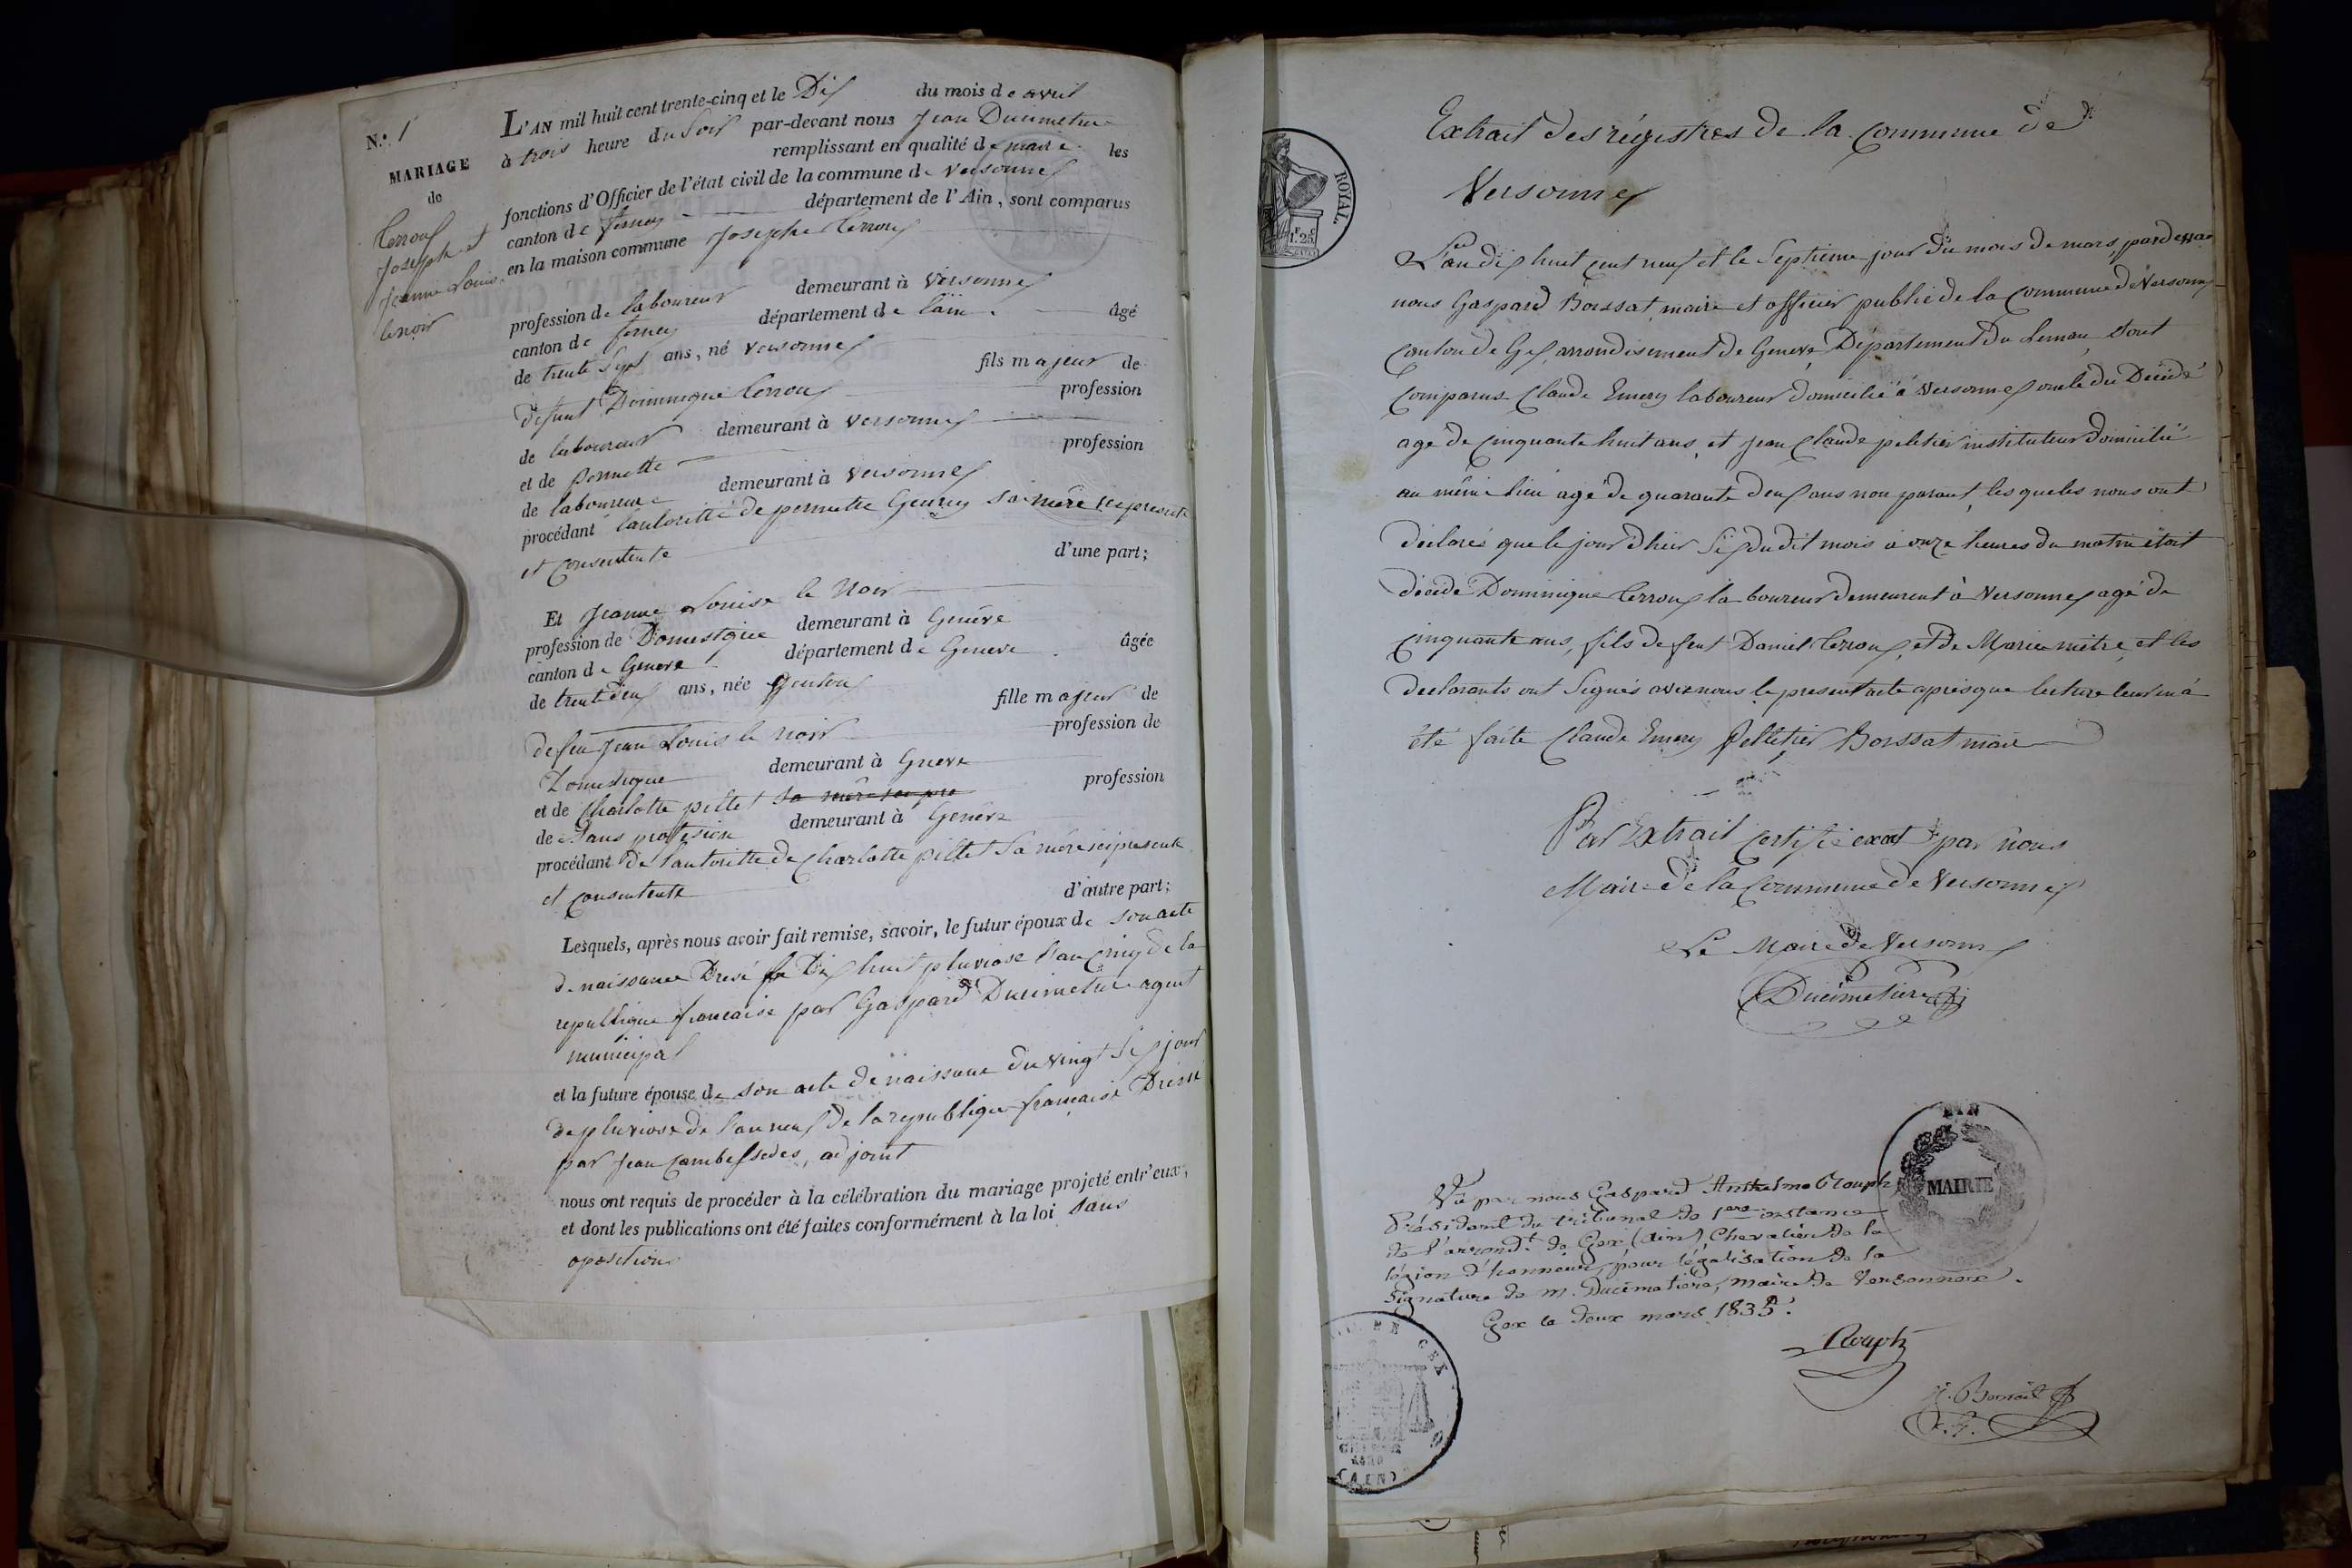 N.º 1
MARIAGE
de
Lerroux
Joseph et
Jeanne Louise
lenoir
L'AN mil huit cent trente-cinq et le Dix du mois de avril
à trois heure du Soir par-devant nous Jean Ducimetiere
remplissant en qualité de maire les
fonctions d'Officier de l'état civil de la commune de Versonnex
canton de ferney département de l'Ain, sont comparus
en la maison commune Joseph Lerroux
profession de laboureur demeurant à Versonnex
canton de ferney département de lain âgé
de trente Sept ans, né Versonnex
fils majeur de
defunt Dominique Lerroux profession
de laboureur demeurant à Versonnex
et de pernette profession
de laboureure demeurant à Versonnex
procédant lautoritté de pernette Sa mère ici presente
et consentente d'une part;
Et Jeanne Louise le Noir
profession de Domestque demeurant à Genève
canton de Geneve département de Geneve âgée
de trente deux ans, née
fille majeur de
defeu Jean Louis le noir profession de
Domestique demeurant à Geneve
et de Charlotte pillet sa mère ici pre profession
de Sans profesion demeurant à Genève
procédant de l'autoritté de Charlotte pillet Sa mère ici presente
et consentente d'autre part;
Lesquels, après nous avoir fait remise, savoir, le futur époux de son acte
de naissance Dresé le Dix huit pluviose l'an cinq de la
republique francaise par Gaspard Ducimetiere agent
municipal
et la future épouse de son acte de naissance du vingt Six jour
de pluviose de l'an neuf de la republique francaise Dressé
par Jean Cambessedes, adjoint
nous ont requis de procéder à la célébration du mariage projeté entr'eux,
et dont les publications ont été faites conformément à la loi sans
oposition
ROYAL
1F. 25C
Extrait des régistres de la Commune de
Versonnex
L'an dix huit cent neuf et le Septieme jour du mois de mars, pardevan
nous Gaspard Boissat maire et officier public de la Commune de Versonnex
Canton de Gex, arrondisement de Geneve, Département du Leman, Sont
Comparus Claude Emery laboureur domicilié à Versonnex oncle du Décidé
agé de cinquante huit ans, et Jean Claude peletier instituteur domicilié
au même lieu agé de quarante deux ans non parant, les quels nous ont
déclaré que le jour d'hier Six dudit mois à onze heures du matin étoit
décédé Dominique Lerroux laboureur demeurent à Versonnex agé de
Cinquante ans, fils defeut Daniel Lerroux, et de Marie mètre, et les
declarants ont Signés avec nous le present acte apres que lecture leur en à
été faite Claude Emery Pelletier Boissat maire
Par Extrait Certifié exact par nous
Maire de la Commune de Versonnex
Le Maire de Versonnex
Ducimetiere
AIN
MAIRIE
Vû par nous Gaspard Anthelme Rouph,
Président du tribunal de 1ere instance
de l'arrondt. de Gex (Ain), Chevalier de la
légion d'honneur, pour légalisation de la
signature de M. Ducimetiere, maire de Versonnex.
Gex le deux mars 1835.
Rouph
GEX
(AIN)